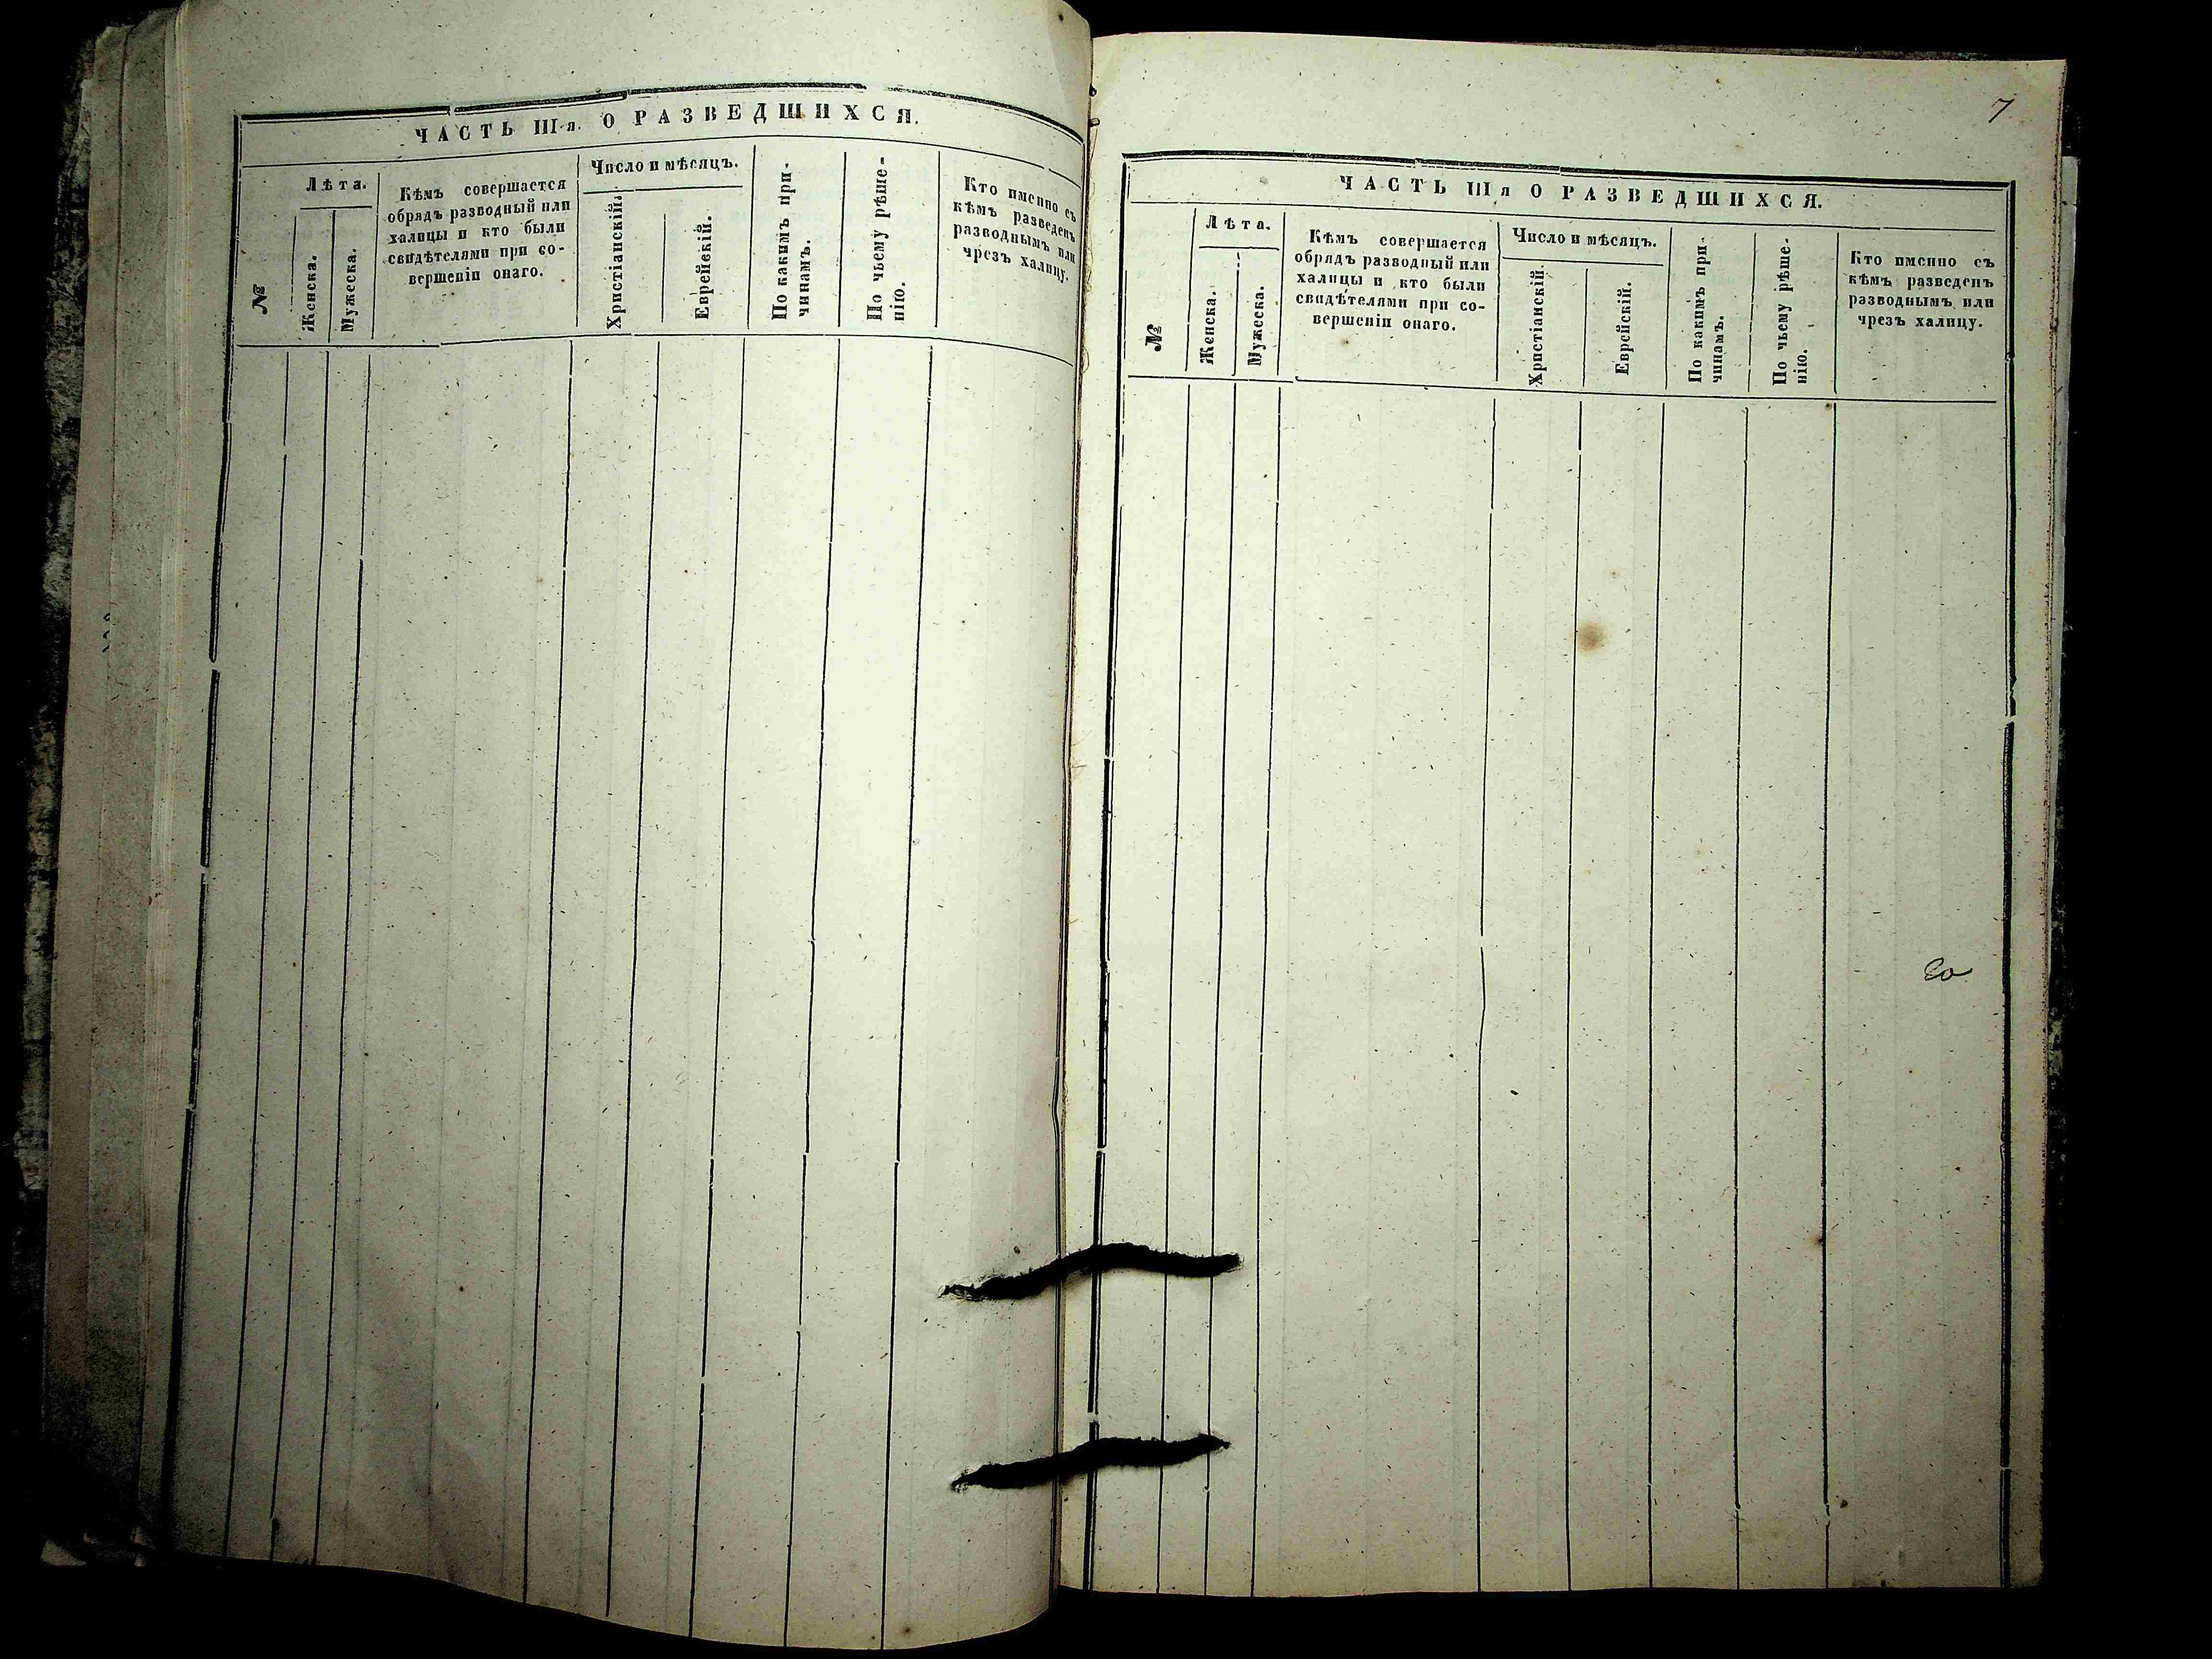 ЧАСТЬ III-я. О РАЗВЕДШИХСЯ.
№
Лѣта.
Женска.
Мужеска.
Кѣмъ совершается
обрядъ разводный или
халицы и кто были
свидѣтелями при со-
вершеніи онаго.
Число и мѣсяцъ.
Христіанскій.
Еврейскій.
По какимъ при-
чинамъ.
По чьему рѣше-
нію.
Кто именно съ
кѣмъ разведенъ
разводнымъ или
чрезъ халицу.
7
ЧАСТЬ III я О РАЗВЕДШИХСЯ.
№
Лѣта.
Женска.
Мужеска.
Кѣмъ совершается
обрядъ разводный или
халицы и кто были
свидѣтелями при со-
вершеніи онаго.
Число и мѣсяцъ.
Христіанскій.
Еврейскій.
По какимъ при-
чинамъ.
По чьему рѣше-
нію.
Кто именно съ
кѣмъ разведенъ
разводнымъ или
чрезъ халицу.